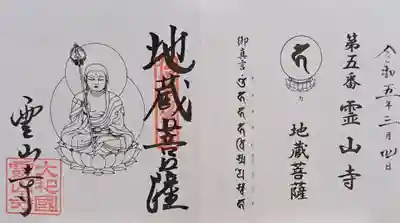 令和五年三月四日
第五番 霊山寺
カ
地蔵菩薩
御真言
地蔵菩薩
霊山寺